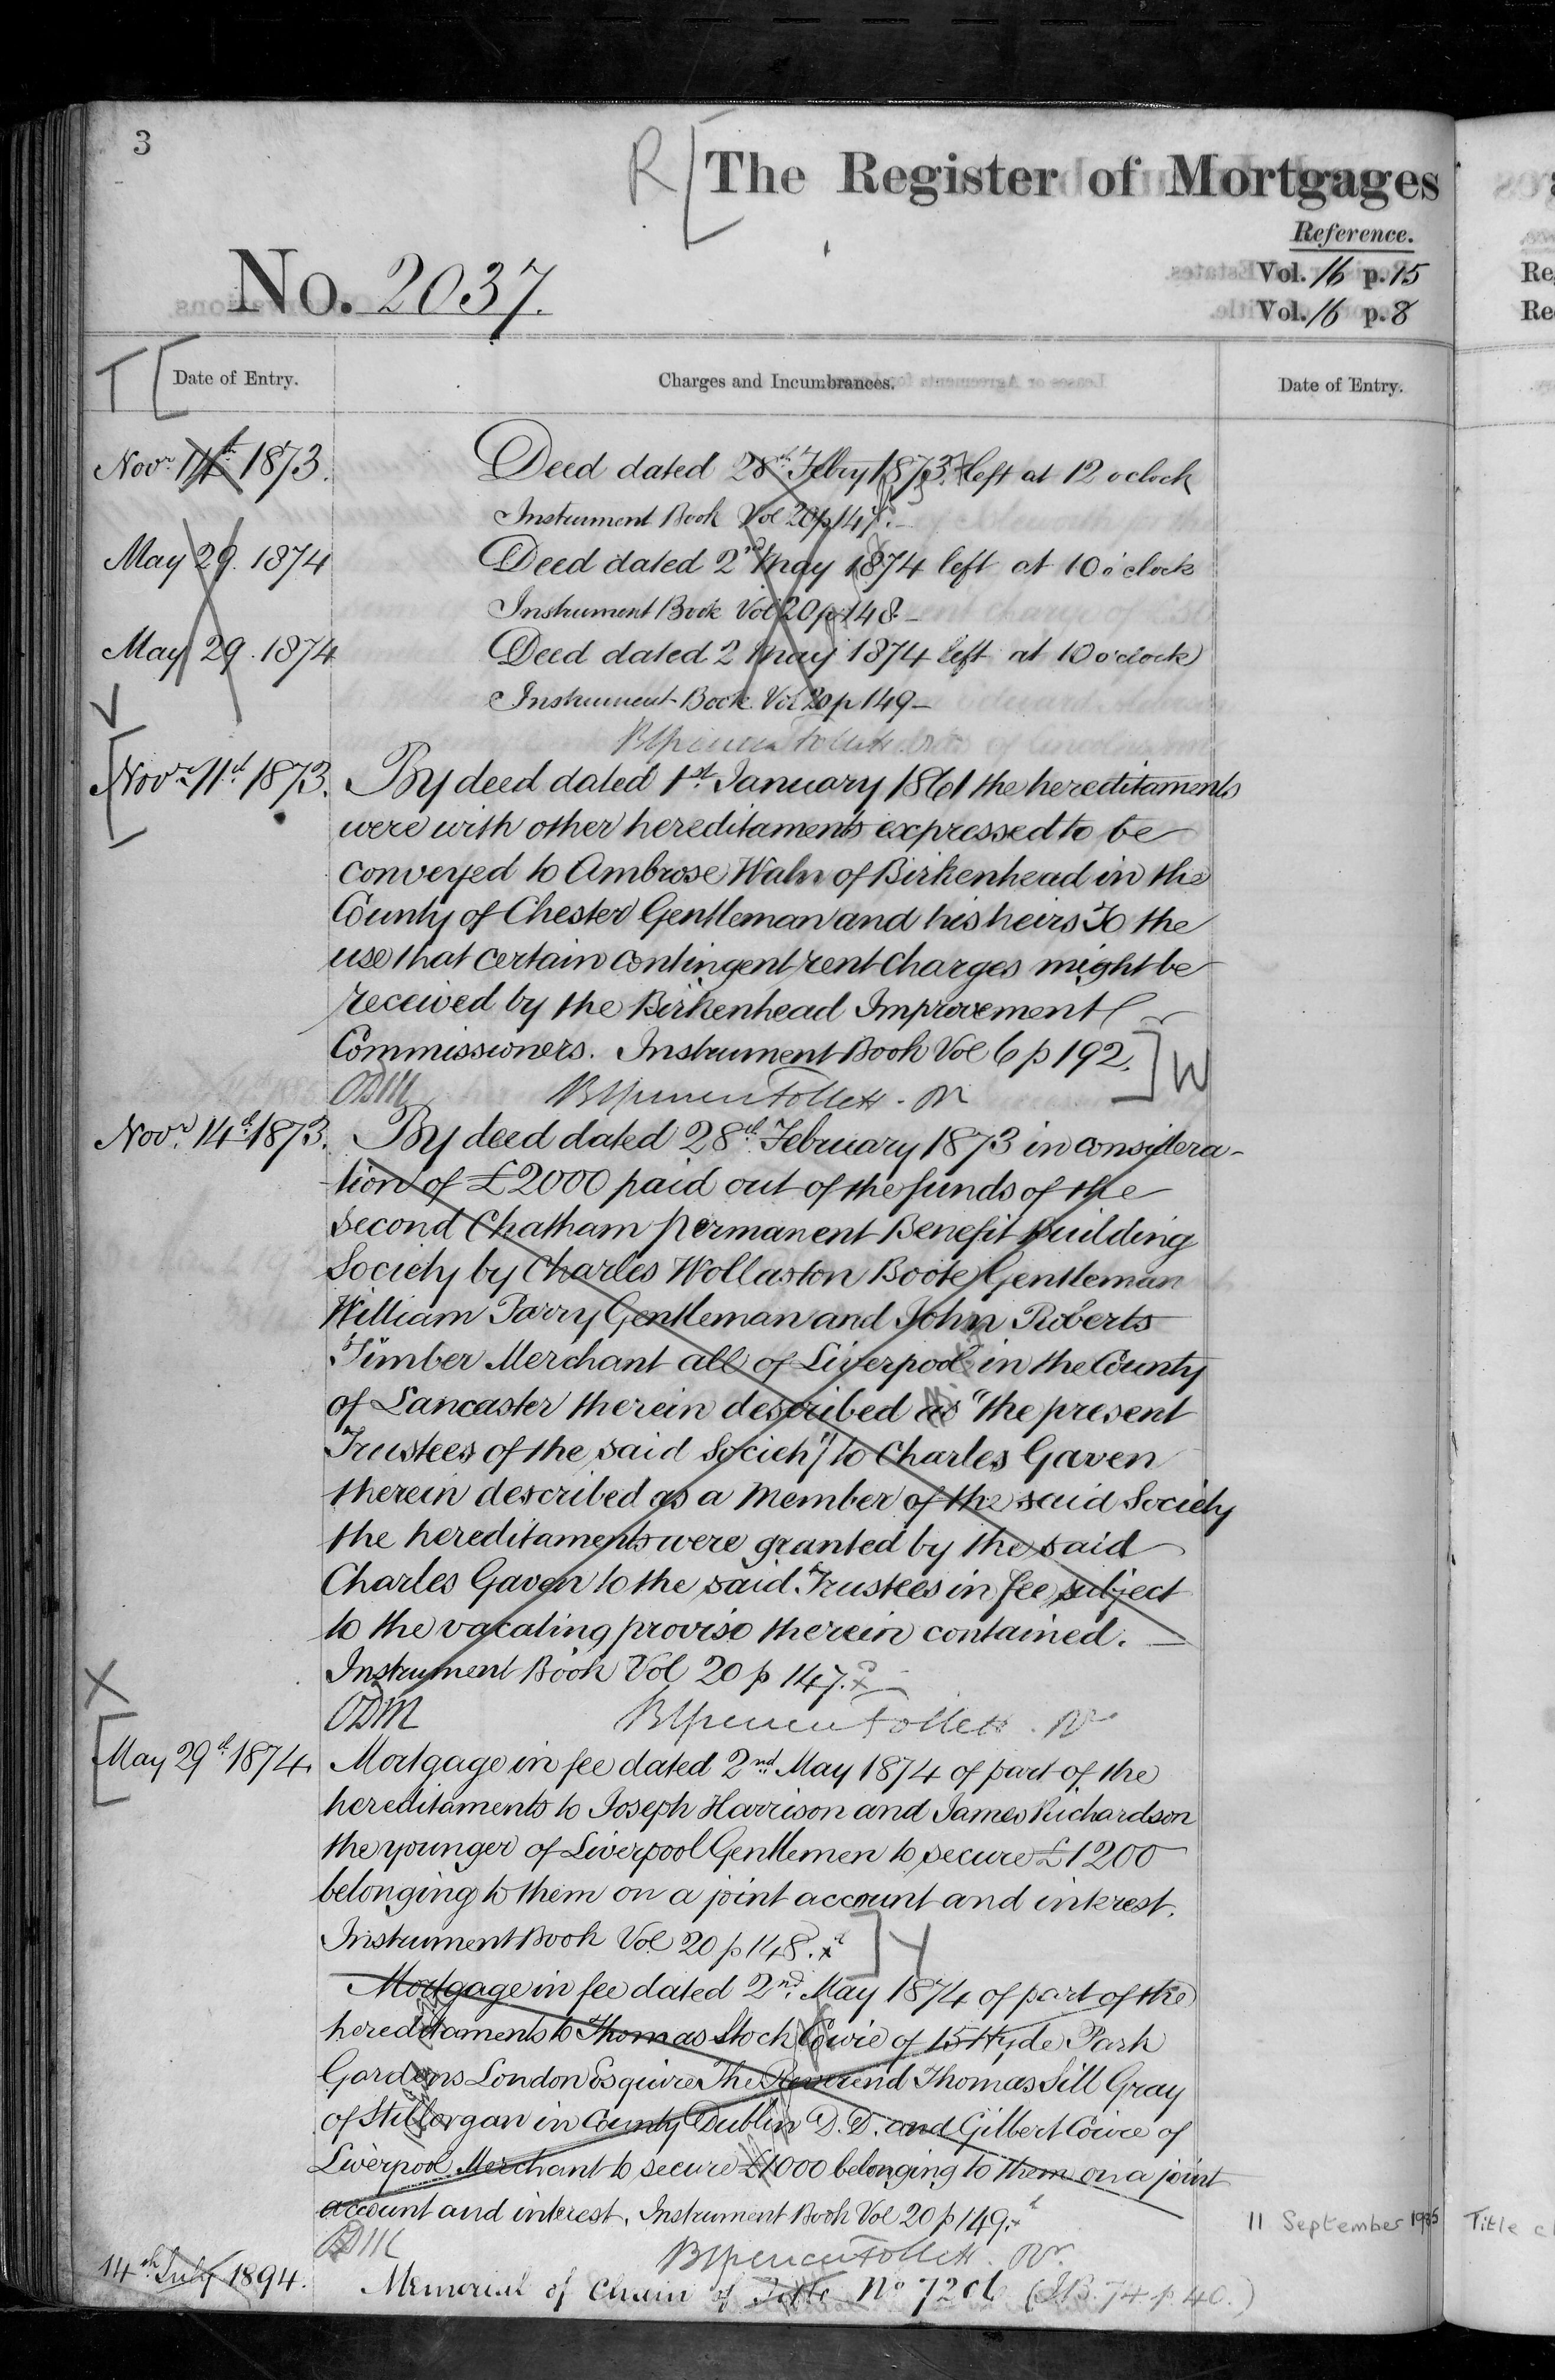 3
R [ The Register of Mortgages
Reference.
No. 2037.
Vol. 16 p. 15
Vol. 16 p. 8
T [ Date of Entry.
Charges and Incumbrances.
Date of Entry.
Novr. 14th 1873.
Deed dated 28th Febry 1873 left at 12 oclock
Instrument Book Vol 20 p 147.
May 29. 1874
Deed dated 2nd May 1874 left at 10 o'clock
Instrument Book Vol 20 p 148 -
May 29. 1874
Deed dated 2 May 1874 left at 10 o'clock
Instrument Book Vol 20 p 149 -
V
BSpencer Follett
[ Novr. 11th 1873.
By deed dated 1st January 1861 the hereditaments
were with other hereditaments expressed to be
conveyed to Ambrose Waln of Birkenhead in the
County of Chester Gentleman and his heirs To the
use that certain contingent rent charges might be
received by the Birkenhead Improvement
Commissioners. Instrument Book Vol 6 p 192. ] W
ODM BSpencer Follett.
Novr. 14th 1873.
By deed dated 28th February 1873 in considera-
tion of £2000 paid out of the funds of the
Second Chatham Permanent Benefit Building
Society by Charles Wollaston Boote Gentleman
William Parry Gentleman and John Roberts
Timber Merchant all of Liverpool in the County
of Lancaster therein described as "the present
Trustees of the said Society" to Charles Gaven
therein described as a Member of the said Society
the hereditaments were granted by the said
Charles Gaven to the said Trustees in fee subject
to the vacating proviso therein contained. —
Instrument Book Vol 20 p 147.
X
ODM BSpencer Follett.
[ May 29th 1874.
Mortgage in fee dated 2nd May 1874 of part of the
hereditaments to Joseph Harrison and James Richardson
the younger of Liverpool Gentlemen to secure £1200
belonging to them on a joint account and interest.
Instrument Book Vol 20 p 148. ] Y
Mortgage in fee dated 2nd May 1874 of part of the
hereditaments to Thomas Stock Cowie of 15 Hyde Park
Gardens London Esquire The Reverend Thomas Sill Gray
of Stillorgan in County Dublin D.D. and Gilbert Cowie of
Liverpool Merchant to secure £1000 belonging to them on a joint
account and interest. Instrument Book Vol 20 p 149.
11 September 1985
Title
ODM BSpencer Follett.
14th July 1894.
Memorial of Chain of Title No 7206 (I.B. 74 p. 40.)